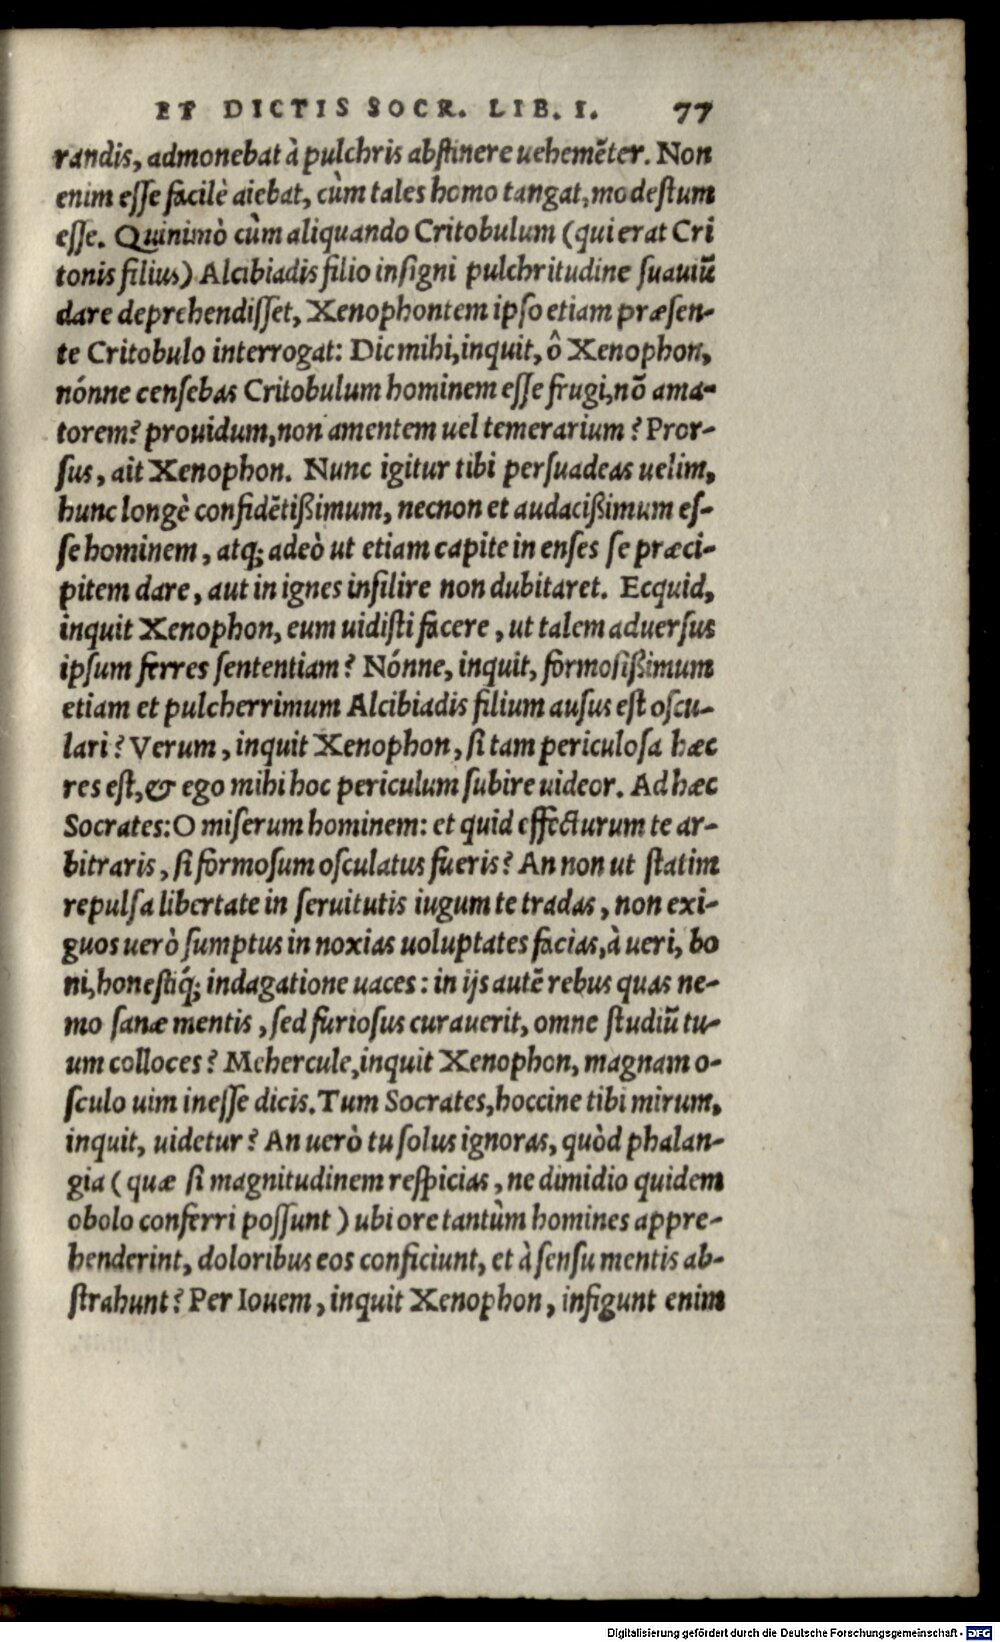 ET DICTIS SOCR. LIB. I. 77
randis, admonebat à pulchris abstinere uehemẽter. Non
enim esse facilè aiebat, cùm tales homo tangat, modestum
esse. Quinimò cùm aliquando Critobulum (qui erat Cri
tonis filius) Alcibiadis filio insigni pulchritudine suauiũ
dare deprehendisset, Xenophontem ipso etiam præsen-
te Critobulo interrogat: Dic mihi, inquit, ô Xenophon,
nónne censebas Critobulum hominem esse frugi, nõ ama-
torem? prouidum, non amentem uel temerarium? Pror-
sus, ait Xenophon. Nunc igitur tibi persuadeas uelim,
hunc longè confidẽtißimum, necnon et audacißimum es-
se hominem, atq; adeò ut etiam capite in enses se præci-
pitem dare, aut in ignes insilire non dubitaret. Ecquid,
inquit Xenophon, eum uidisti facere, ut talem aduersus
ipsum ferres sententiam? Nónne, inquit, formosißimum
etiam et pulcherrimum Alcibiadis filium ausus est oscu-
lari? Verum, inquit Xenophon, si tam periculosa hæc
res est, & ego mihi hoc periculum subire uideor. Ad hæc
Socrates: O miserum hominem: et quid effecturum te ar-
bitraris, si formosum osculatus fueris? An non ut statim
repulsa libertate in seruitutis iugum te tradas, non exi-
guos uerò sumptus in noxias uoluptates facias, à ueri, bo
ni, honestiq́; indagatione uaces: in ijs autẽ rebus quas ne-
mo sanæ mentis, sed furiosus curauerit, omne studiũ tu-
um colloces? Mehercule, inquit Xenophon, magnam o-
sculo uim inesse dicis. Tum Socrates, hoccine tibi mirum,
inquit, uidetur? An uerò tu solus ignoras, quòd phalan-
gia (quæ si magnitudinem respicias, ne dimidio quidem
obolo conferri possunt) ubi ore tantùm homines appre-
henderint, doloribus eos conficiunt, et à sensu mentis ab-
strahunt? Per Iouem, inquit Xenophon, infigunt enim
Digitalisierung gefördert durch die Deutsche Forschungsgemeinschaft - DFG